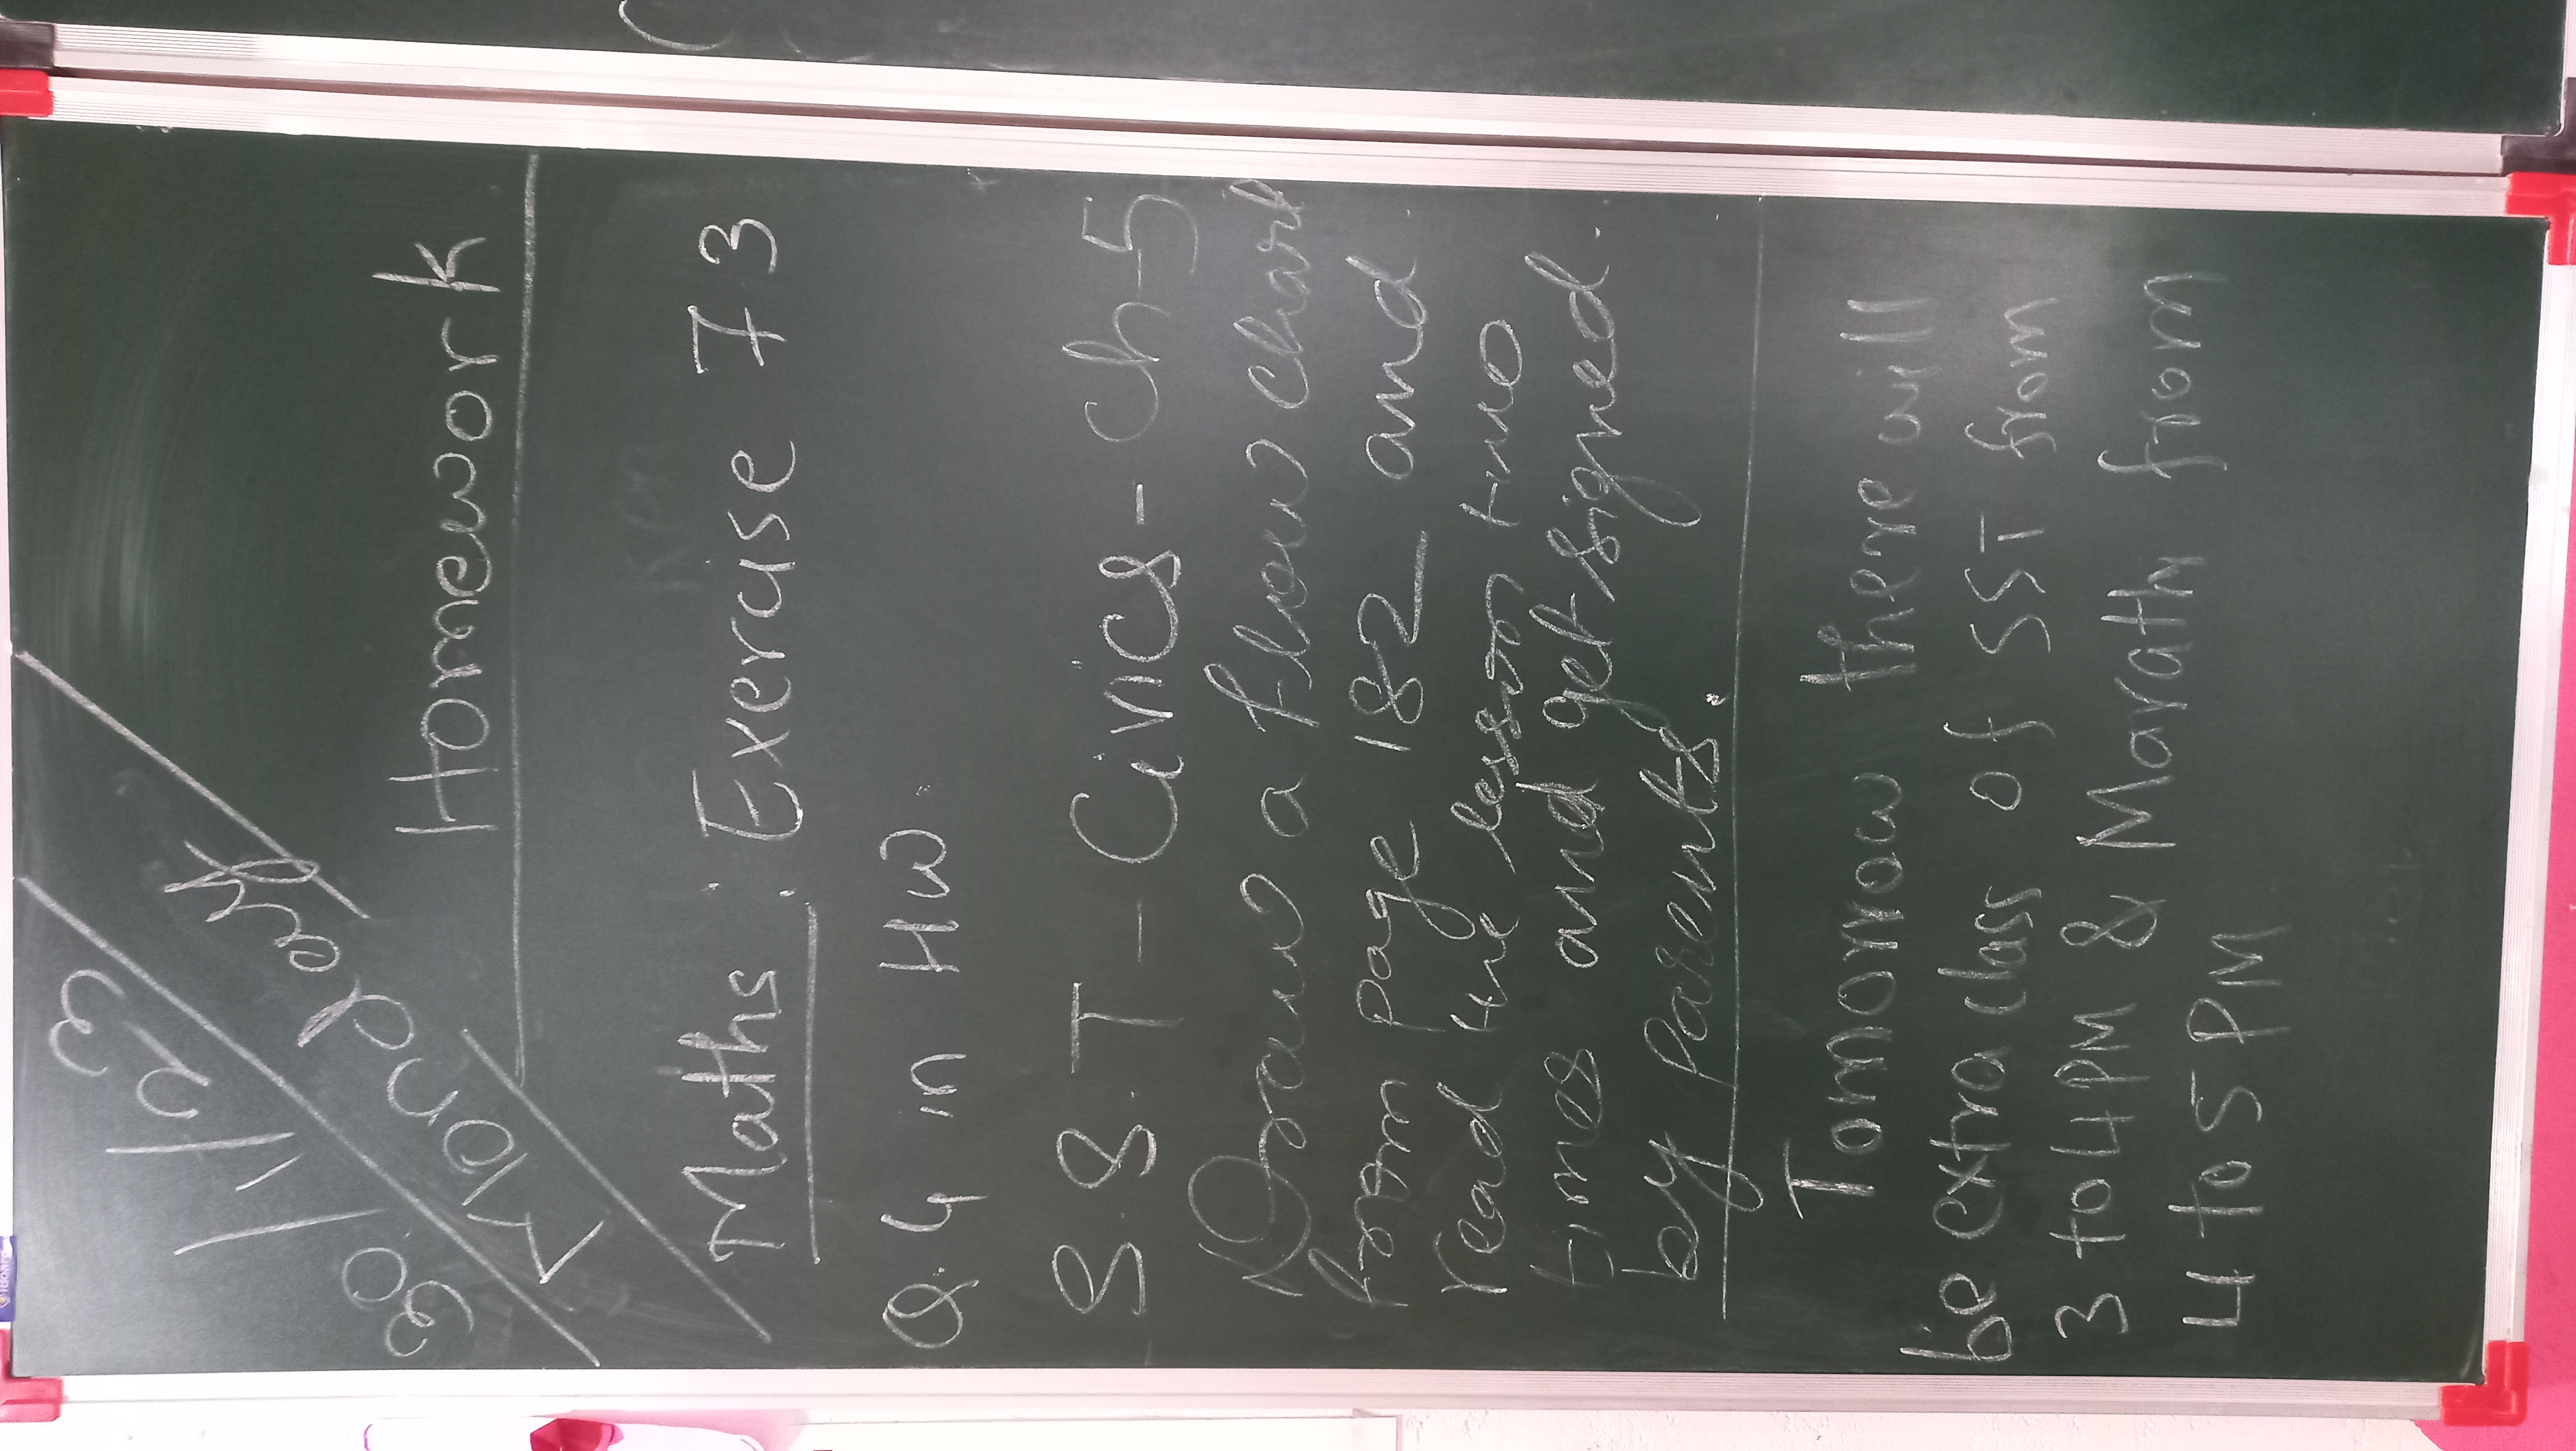 30/1/23
Monday
Homework
Maths : Exercise 7 3
Q. 4 in HW.
S S T - Civics - Ch-5
Draw a flow chart
from page 182 and
read the lesson two
times and get signed.
by parents.
Tomorrow there will
be extra class of SST from
3 to 4 PM & Marathi from
4 to 5 PM